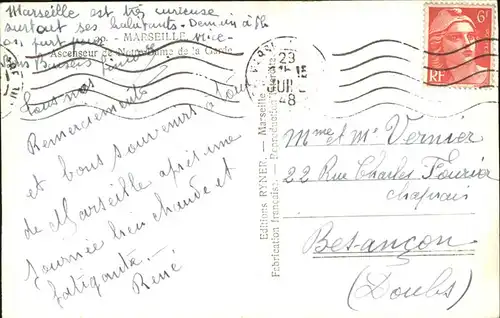 Marseille est très curieuse
surtout ses habitants. Demain à 8h
on part
MARSEILLE.
Ascenseur de Notre-Dame de la Garde
Bons Baisers
Tous nos
Remerciements
et bons souvenirs à tous
de Marseille après une
journée bien chaude et
fatigante.
René
Editions RYNER. — Marseille
Fabrication française. — Reproduction
29
JUIL
48
6F
RF
Mme et Mr Vernier
22 Rue Charles Fourier
Chaprais
Besançon
(Doubs)